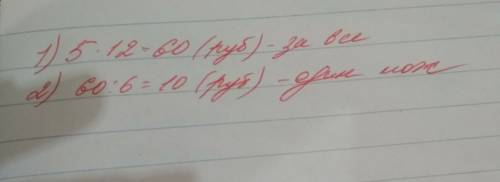 1) 5 · 12 = 60 (руб) - за все
2) 60 : 6 = 10 (руб) - один нож